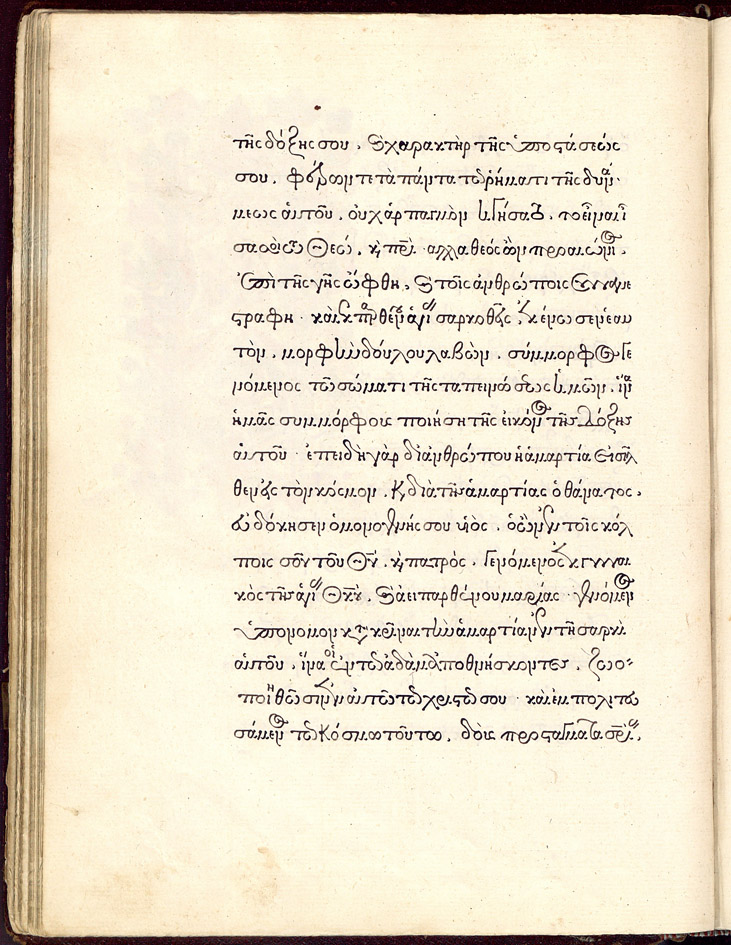 τῆς δόξης σου, καὶ χαρακτὴρ τῆς ὑποστάσεώς
σου. φέρων τε τὰ πάντα τῷ ῥήματι τῆς δυνά
μεως αὐτοῦ. οὐχ ἁρπαγμὸν ἡγήσατο, τὸ εἶναι ἴ
σα σοὶ τῷ Θεῷ, καὶ πρὶ. ἀλλὰ θεὸς ὢν προαιώνιος.
ἐπὶ τῆς γῆς ὤφθη, καὶ τοῖς ἀνθρώποις συνανε
στράφη. καὶ ἐκ παρθένου ἁγίας σαρκωθεὶς, ἐκένωσεν ἑαυ
τὸν. μορφὴν δούλου λαβὼν. σύμμορφος γε
νόμενος τῷ σώματι τῆς ταπεινώσεως ἡμῶν. ἵνα
ἡμᾶς συμμόρφους ποιήσῃ τῆς εἰκόνος τῆς δόξης
αὐτοῦ. ἐπειδὴ γὰρ δι' ἀνθρώπου ἡ ἁμαρτία εἰσῆλ
θεν εἰς τὸν κόσμον. καὶ διὰ τῆς ἁμαρτίας ὁ θάνατος,
εὐδόκησεν ὁ μονογενής σου υἱὸς. ὁ ὢν ἐν τοῖς κόλ
ποις σοῦ τοῦ Θυ. καὶ πατρὸς. γενόμενος ἐκ γυναι
κὸς τῆς ἁγίας Θκου. καὶ ἀειπαρθένου μαρίας. γενόμενος
ὑπὸ νόμον κατακρῖναι τὴν ἁμαρτίαν ἐν τῇ σαρκὶ
αὐτοῦ, ἵνα οἱ ἐν τῷ ἀδὰμ ἀποθνήσκοντες, ζωο-
ποιηθῶσιν ἐν αὐτῷ τῷ χριστῷ σου. καὶ ἐμπολιτευ
σάμενος τῷ κόσμῳ τούτῳ. δοὺς προστάγματα σρίας,